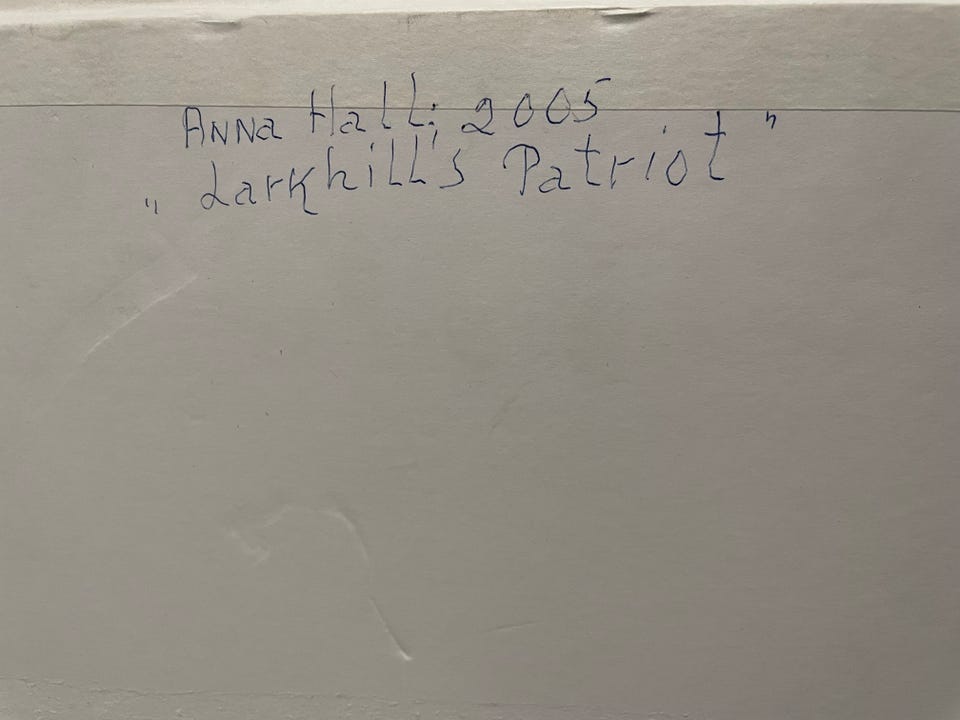 Anna Hall; 2005
"Larkhill's Patriot"